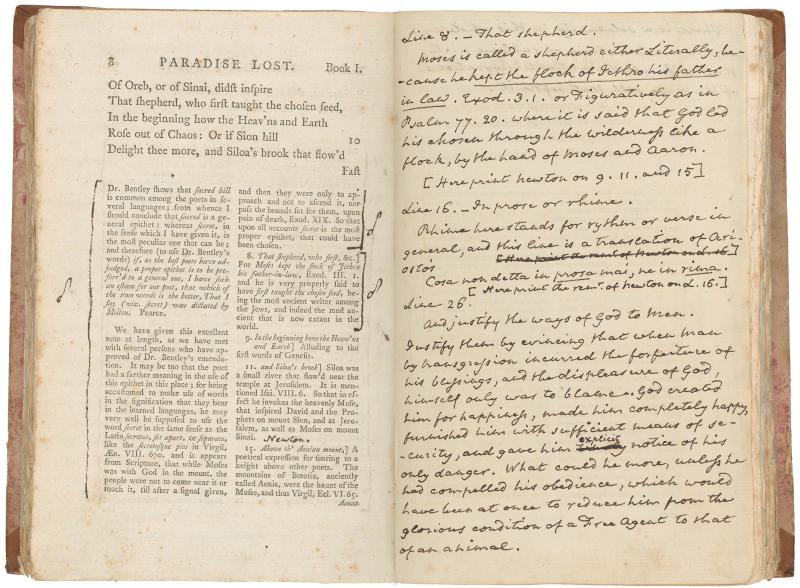 8 PARADISE LOST. Book I.
Of Oreb, or of Sinai, didſt inſpire
That ſhepherd, who firſt taught the choſen ſeed,
In the beginning how the Heav'ns and Earth
Roſe out of Chaos: Or if Sion hill 10
Delight thee more, and Siloa's brook that flow'd
Faſt
Dr. Bentley ſhows that ſacred hill
is common among the poets in ſe-
veral languages; from whence I
ſhould conclude that ſacred is a ge-
neral epithet: whereas ſecret, in
the ſenſe which I have given it, is
the moſt peculiar one that can be;
and therefore (to uſe Dr. Bentley's
words) if, as the beſt poets have ad-
judged, a proper epithet is to be pre-
ferr'd to a general one, I have ſuch
an eſteem for our poet, that which of
the two words is the better, That I
ſay (viz. ſecret) was dictated by
Milton. Pearce.
We have given this excellent
note at length, as we have met
with ſeveral perſons who have ap-
proved of Dr. Bentley's emenda-
tion. It may be too that the poet
had a farther meaning in the uſe of
this epithet in this place; for being
accuſtomed to make uſe of words
in the ſignification that they bear
in the learned languages, he may
very well be ſuppoſed to uſe the
word ſecret in the ſame ſenſe as the
Latin ſecretus, ſet apart, or ſeparate,
like the ſecretoſque pios in Virgil,
Æn. VIII. 670. and it appears
from Scripture, that while Moſes
was with God in the mount, the
people were not to come near it or
touch it, till after a ſignal given,
and then they were only to ap-
proach and not to aſcend it, nor
paſs the bounds ſet for them, upon
pain of death, Exod. XIX. So that
upon all accounts ſecret is the moſt
proper epithet, that could have
been choſen.
8. That ſhepherd, who firſt, &c.]
For Moſes kept the flock of Jethro
his father-in-law, Exod. III. 1.
and he is very properly ſaid to
have firſt taught the choſen ſeed, be-
ing the moſt ancient writer among
the Jews, and indeed the moſt an-
cient that is now extant in the
world.
9. In the beginning how the Heav'ns
and Earth] Alluding to the
firſt words of Geneſis.
11. and Siloa's brook] Siloa was
a ſmall river that flow'd near the
temple at Jeruſalem. It is men-
tioned Iſai. VIII. 6. So that in ef-
fect he invokes the heavenly Muſe,
that inſpired David and the Pro-
phets on mount Sion, and at Jeru-
ſalem, as well as Moſes on mount
Sinai. Newton.
15. Above th' Aonian mount,] A
poetical expreſſion for ſoaring to a
highth above other poets. The
mountains of Bœotia, anciently
called Aonia, were the haunt of the
Muſes, and thus Virgil, Ecl. VI. 65.
Aonas
Line 8. – That shepherd.
Moses is called a shepherd either Literally, be-
-cause he kept the flock of Jethro his father
in law. Exod. 3. 1. or Figuratively as in
Psalm 77. 20. where it is said that God led
his chosen through the wilderness like a
flock, by the hand of Moses and Aaron.
[Here print Newton on 9. 11. and 15]
Line 16. – In prose or rhime.
Rhime here stands for rythm or verse in
general, and this line is a translation of Ari-
osto's [Here print the rem.r of Newton on L. 16.]
Cosa non detta in prosa mai, ne in rima.
[Here print the rem.r of Newton on L. 16.]
Line 26.
And justify the ways of God to Men.
Justify them by evincing that when man
by transgression incurred the forfeiture of
his blessings, and the displeasure of God,
himself only was to blame. God created
him for happiness, made him completely happy,
furnished him with sufficient means of se-
-curity, and gave him explicit notice of his
only danger. What could he more, unless he
had compelled his obedience, which would
have been at once to reduce him from the
glorious condition of a Free Agent to that
of an animal.